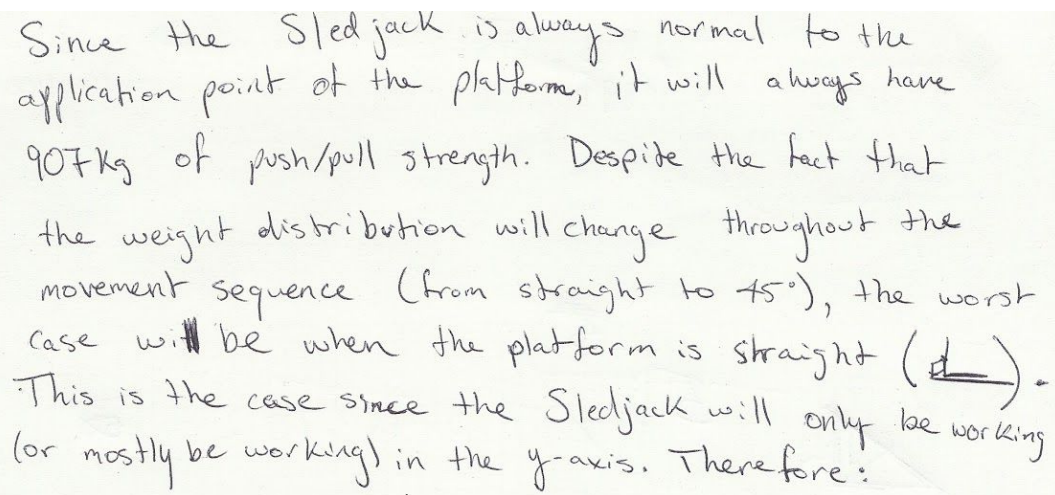 Since the Sledjack is always normal to the
application point of the platform, it will always have
907Kg of push/pull strength. Despite the fact that
the weight distribution will change throughout the
movement sequence (from straight to 45°), the worst
case will be when the platform is straight ( ).
This is the case since the Sledjack will only be working
(or mostly be working) in the y-axis. Therefore: